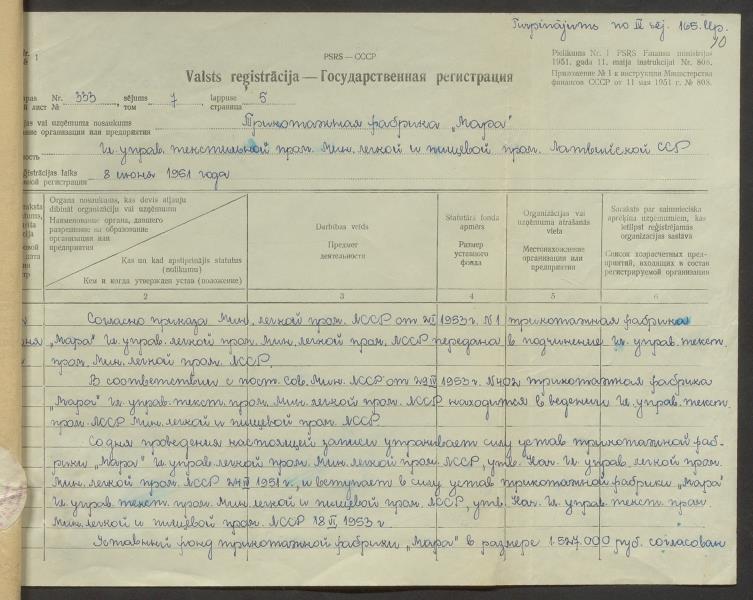 Turpinājums no IV sēj. 165. llp.
70
1
PSRS — СССР
Pielikums Nr. 1 PSRS Finansu ministrijas
1951. gada 11. maija instrukcijai Nr. 808.
Приложение № 1 к инструкции Министерства
финансов СССР от 11 мая 1951 г. № 808.
Valsts reģistrācija — Государственная регистрация
Nr. 333 sējums 7 lappuse 5
лист № том страница
nosaukums Трикотажная фабрика „Мара"
организации или предприятия
Гл. управ. текстильной пром. Мин. легкой и пищевой пром. Латвийской ССР
laiks 8 июня 1951 года
регистрации
Organa nosaukums, kas devis atļauju
dibināt organizāciju vai uzņēmumu
Наименование органа, давшего
разрешение на образование
организации или
предприятия
Kas un kad apstiprinājis statutus
(nolikumu)
Кем и когда утвержден устав (положение)
Darbības veids
Предмет
деятельности
Statutārā fonda
apmērs
Размер
уставного
фонда
Organizācijas vai
uzņēmuma atrašanās
vieta
Местонахождение
организации или
предприятия
Saraksts par saimnieciskā
aprēķina uzņēmumiem, kas
ietilpst reģistrējamās
organizācijas sastāvā
Список хозрасчетных пред-
приятий, входящих в состав
регистрируемой организации
2 3 4 5 6
Согласно приказа Мин. легкой пром. ЛССР от 1953 г. №1 трикотажная фабрика
„Мара" Гл. управ. легкой пром. Мин. легкой пром. ЛССР передана в подчинение Гл. управ. текст.
пром. Мин. легкой пром. ЛССР.
В соответствии с пост. Сов. Мин. ЛССР от 29 IV 1953 г. №402 трикотажная фабрика
„Мара" Гл. управ. текст. пром. Мин. легкой пром. ЛССР находится в ведении Гл. управ. текст.
пром. ЛССР Мин. легкой и пищевой пром. ЛССР.
Со дня проведения настоящей записи утрачивает силу устав трикотажной фаб-
рики „Мара" Гл. управ. легкой пром. Мин. легкой пром. ЛССР, утв. Нач. Гл. управ. легкой пром.
Мин. легкой пром. ЛССР 1951 г., и вступает в силу устав трикотажной фабрики „Мара"
Гл. управ. текст. пром. Мин. легкой и пищевой пром. ЛССР, утв. Нач. Гл. управ. текст. пром.
Мин. легкой и пищевой пром. ЛССР 18 1953 г.
Уставный фонд трикотажной фабрики „Мара" в размере 1.527.000 руб. согласован